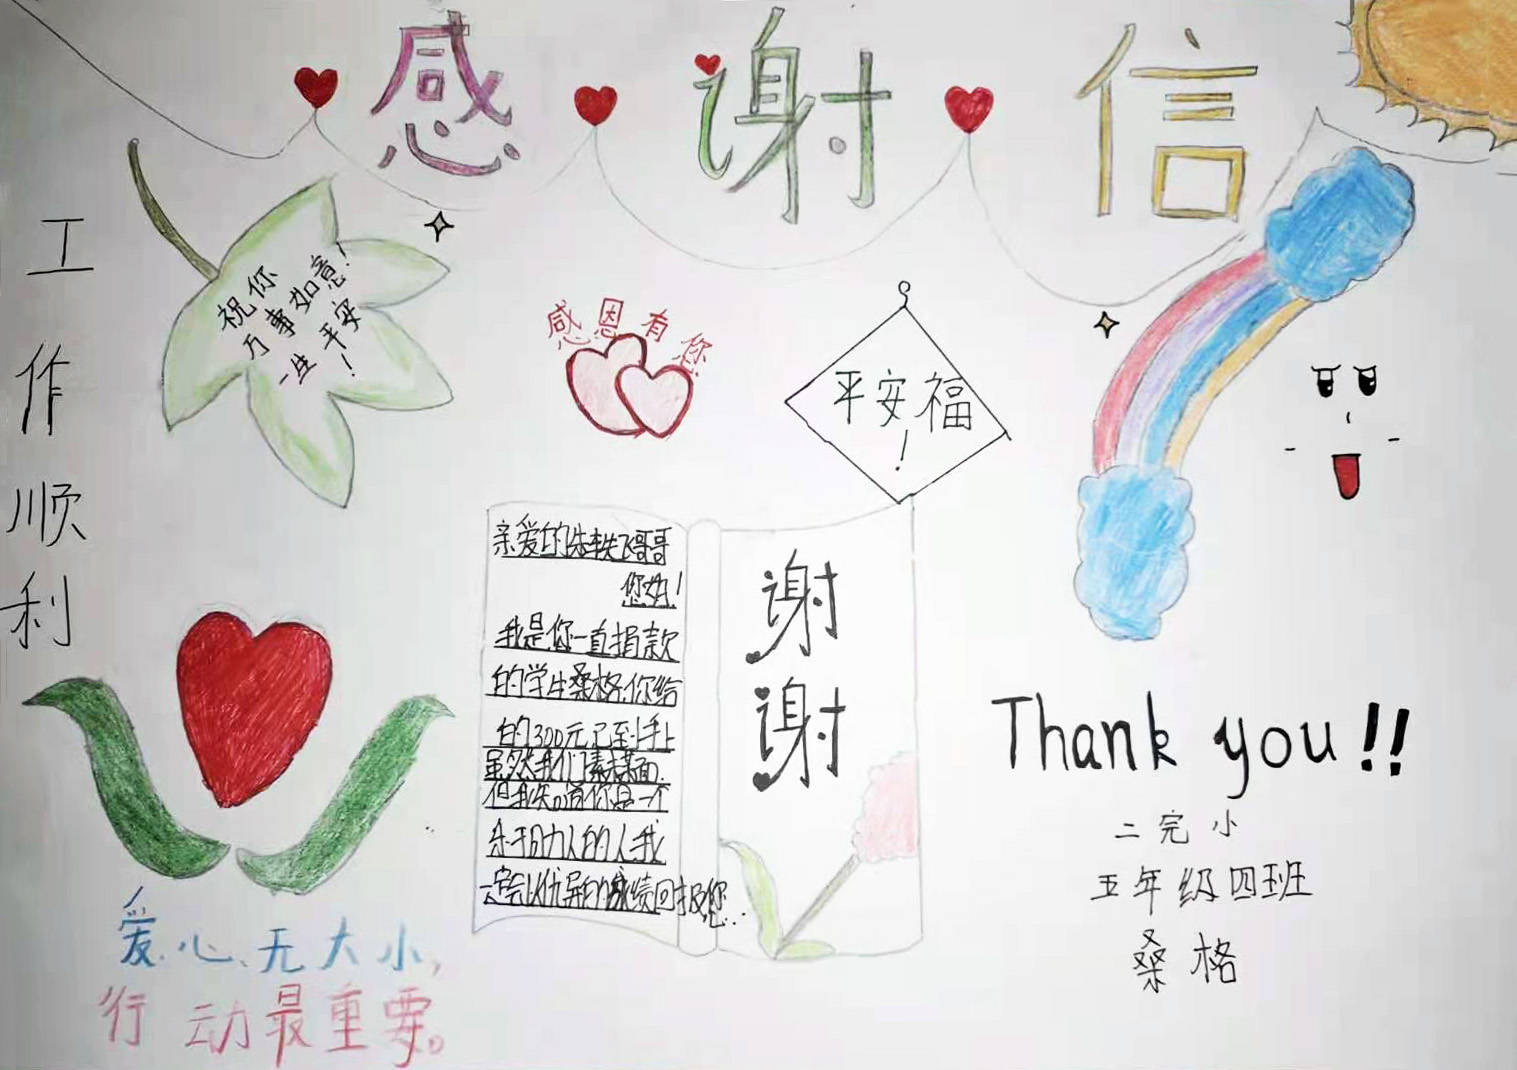 感谢信
工作顺利
祝你
万事如意!
一生平安
!
感恩有您
平安福
!
亲爱的朱轶飞哥哥
您好!
我是你一直捐款
的学生桑格,你给
的300元已到手上
虽然我们素未谋面,
但我知道你是一个
乐于助人的人,我
一定会以优异的成绩回报您...
谢
谢
Thank you!!
二完小
五年级四班
桑格
爱心无大小,
行动最重要。